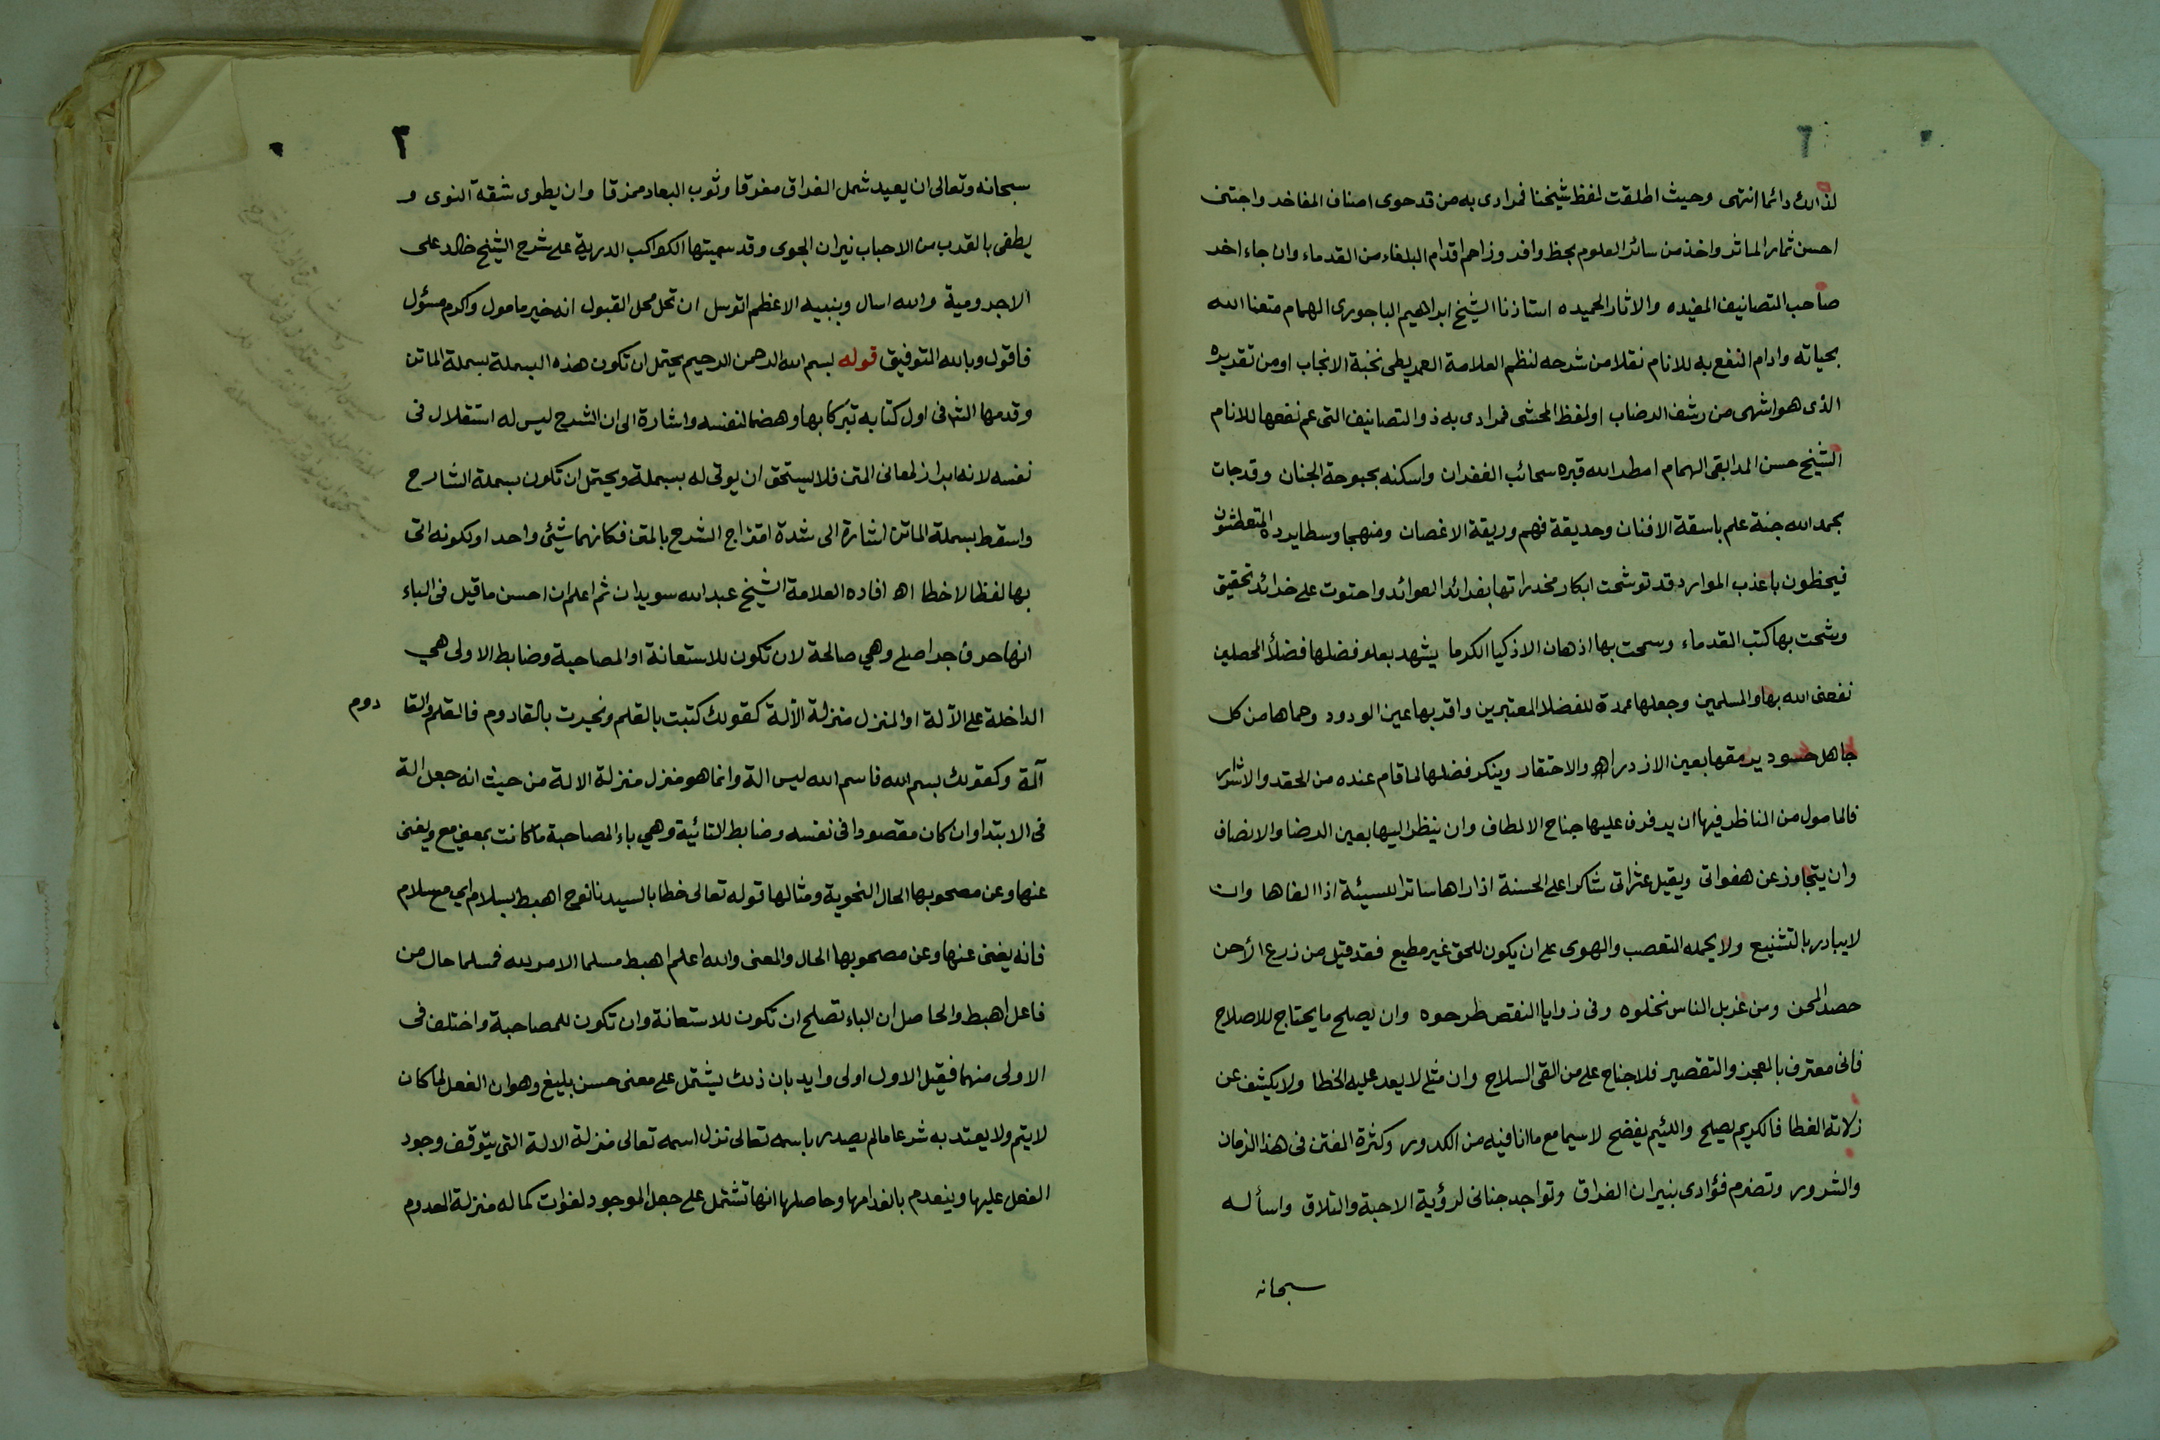 ٢
لذالك دائما انتهى وحيث اطلقت لفظ شيخنا فمرادى به من قد حوى اصناف المفاخر واجتنى
احسن ثمار الماثر واخذ من سائر العلوم بحظ وافر وزاحم اقدام البلغاء من القدماء وان جاء اخر
صاحب التصانيف المفيده والاثار الحميده استاذنا الشيخ ابراهيم الباجورى الهمام متعنا الله
بحياته وادام النفع به للانام نقلا من شرحه لنظم العلامة العمريطى نخبة الانجاب او من تقريره
الذى هو اشهى من رشف الرضاب او لفظ المحشى فمرادى به ذو التصانيف التى عم نفعها للانام
الشيخ حسن المدابقى الهمام امطر الله قبره سحائب الغفران واسكنه بحبوحة الجنان وقد جات
بحمد الله جنة علم باسقة الافنان وحديقة فهم وريقة الاغصان ومنهجا وسطا يرده المتعطشون
فيحظون باعذب الموارد قد توشحت ابكار مخدراتها بفرائد العوائد واحتوت على خرائد تحقيق
وشحت بها كتب القدماء وسمحت بها اذهان الاذكيا الكرما يشهد بعلو فضلها فضلأ المحصلين
نفعنى الله بها والمسلمين وجعلها عمدة للفضلا المعتبرين واقر بها عين الودود وحماها من كل
جاهل حسود يرمقها بعين الازدراء والاحتقار وينكر فضلها لما قام عنده من الحقد والاشرار
فالمامول من الناظر فيها ان يرفرف عليها جناح الالطاف وان ينظر اليها بعين الرضا والانصاف
وان يتجاوز عن هفواتى ويقيل عثراتى شاكرا على الحسنة اذا راها ساترا للسيئة اذا الفاها وان
لا يبادر بالتشنيع ولا يحمله التعصب والهوى على ان يكون للحق غير مطيع فقد قيل من زرع الأحن
حصد المحن ومن غربل الناس نخلوه وفى زوايا النقص طرحوه وان يصلح ما يحتاج للاصلاح
فانى معترف بالعجز والتقصير فلا جناح على من القى السلاح وان مثلى لا يعد عليه الخطا ولا يكشف عن
زلاته الغطا فالكريم يصلح واللئيم يفضح لا سيما مع ما انا فيه من الكدور وكثرة الفتن فى هذا الزمان
والشرور وتضرم فؤادى بنيران الفراق وتواجد جنانى لرؤية الاحبة والتلاق واسأله
سبحانه
٣
سبحانه وتعالى ان يعيد شمل الفراق مفرقا وثوب البعاد ممزقا وان يطوى شقة النوى و
يطفى بالقرب من الاحباب نيران الجوى وقد سميتها الكواكب الدرية على شرح الشيخ خالد على
الاجرومية والله اسال وبنبيه الاعظم اتوسل ان تحل محل القبول انه خير مامول واكرم مسئول
فاقول وبالله التوفيق قوله بسم الله الرحمن الرحيم يحتمل ان تكون هذه البسملة بسملة الماتن
وقدمها الشـ فى اول كتابه تبركا بها وهضما لنفسه واشارة الى ان الشرح ليس له استقلال فى
نفسه لانه ابراز لمعانى المتن فلا يستحق ان يوتى له ببسملة ويحتمل ان تكون بسملة الشارح
واسقط بسملة الماتن اشارة الى شدة امتزاج الشرح بالمتن فكانهما شيئ واحد او لكونه اتى
بها لفظا لا خطا اهـ افاده العلامة الشيخ عبد الله سويدان ثم اعلم ان احسن ما قيل فى الباء
انها حرف جر اصلى وهي صالحة لان تكون للاستعانة او المصاحبة وضابط الاولى هي
الداخلة على الآلة او المنزل منزلة الآلة كقولك كتبت بالقلم ونجرت بالقادوم فالقلم والقا دوم
آلة وكقولك بسم الله فاسم الله ليس الة وانما هو منزل منزلة الالة من حيث انه جعل الة
فى الابتدا وان كان مقصودا فى نفسه وضابط الثانية وهي باء المصاحبة ما كانت بمعنى مع ويغنى
عنها وعن مصحوبها الحال النحوية ومثالها قوله تعالى خطابا لسيدنا نوح اهبط بسلام اي مع سلام
فانه يغنى عنها وعن مصحوبها الحال والمعنى والله اعلم اهبط مسلما الامر لله فمسلما حال من
فاعل اهبط والحاصل ان الباء تصلح ان تكون للاستعانة وان تكون للمصاحبة واختلف فى
الاولى منهما فقيل الاول اولى وايد بان ذلك يشتمل على معنى حسن بليغ وهو ان الفعل لما كان
لا يتم ولا يعتد به شرعا ما لم يصدر باسمه تعالى نزل اسمه تعالى منزلة الالة التى يتوقف وجود
الفعل عليها وينعدم بانعدامها وحاصلها انها تشتمل على جعل الموجود لفوات كماله منزلة المعدوم